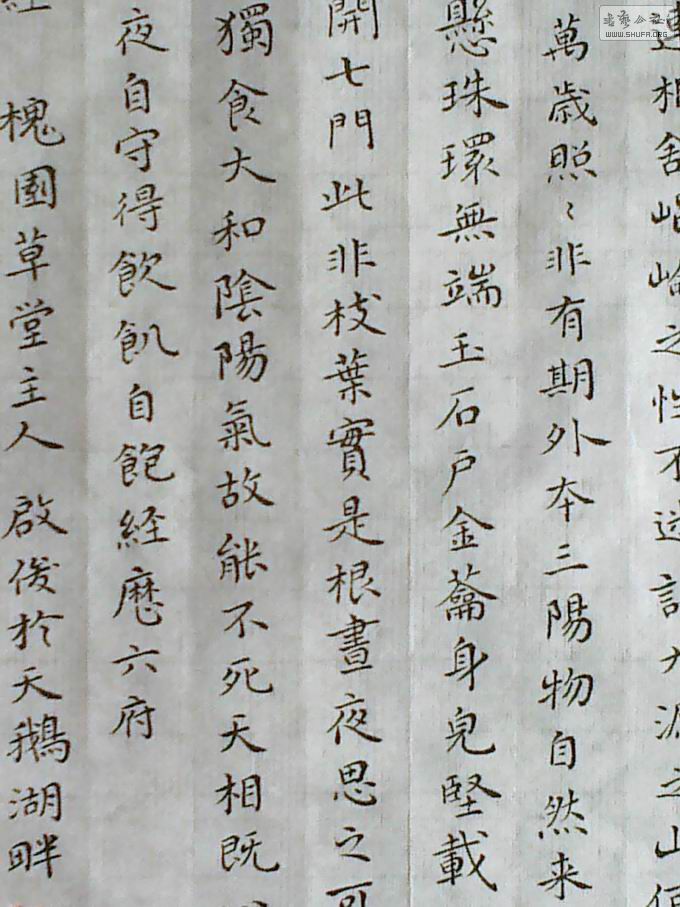 連相舍崐崘之性不迷誤九源之山何
萬歲照〻非有期外本三陽物自然来
懸珠環無端玉石戶金蘥身皃堅載
開七門此非枝葉實是根晝夜思之可
獨食大和陰陽氣故能不死天相既
夜自守得飲飢自飽経歷六府
槐園草堂主人 啟俊於天鵝湖畔
WWW.SHUFA.ORG